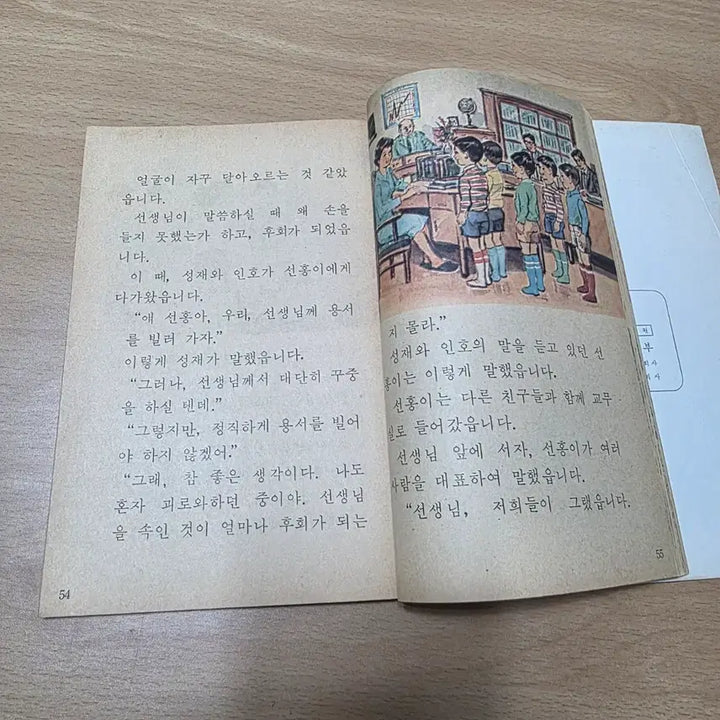 얼굴이 자꾸 달아오르는 것 같았
읍니다.
선생님이 말씀하실 때 왜 손을
들지 못했는가 하고, 후회가 되었읍
니다.
이 때, 성재와 인호가 선홍이에게
다가왔읍니다.
“얘 선홍아, 우리, 선생님께 용서
를 빌러 가자.”
이렇게 성재가 말했읍니다.
“그러나, 선생님께서 대단히 꾸중
을 하실 텐데.”
“그렇지만, 정직하게 용서를 빌어
야 하지 않겠어.”
“그래, 참 좋은 생각이다. 나도
혼자 괴로와하던 중이야. 선생님
을 속인 것이 얼마나 후회가 되는
54
지 몰라.”
성재와 인호의 말을 듣고 있던 선
홍이는 이렇게 말했읍니다.
선홍이는 다른 친구들과 함께 교무
실로 들어갔읍니다.
선생님 앞에 서자, 선홍이가 여러
사람을 대표하여 말했읍니다.
“선생님, 저희들이 그랬읍니다.
55
부